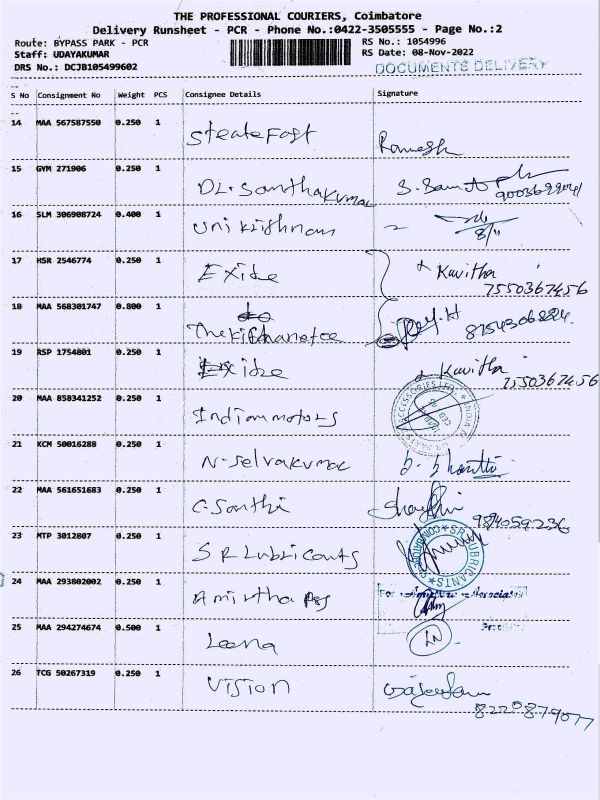 THE PROFESSIONAL COURIERS, Coimbatore
Delivery Runsheet - PCR - Phone No.:0422-3505555 - Page No.:2
Route: BYPASS PARK - PCR
RS No.: 1054996
Staff: UDAYAKUMAR
RS Date: 08-Nov-2022
DRS No.: DCJB105499602
DOCUMENTS DELIVERY
S No Consignment No Weight PCS Consignee Details Signature
14 MAA 567587550 0.250 1 Steate Fast Ramesh
15 GYM 271906 0.250 1 DL. Santhakumar
16 SLM 306908724 0.400 1 Uni Krishnan 8/11
17 HSR 2546774 0.250 1 Exide Kavitha
7550367456
18 MAA 568301747 0.800 1
19 RSP 1754801 0.250 1 Exide Kavitha
7550367456
20 MAA 858341252 0.250 1 Indian motors
21 KCM 50016288 0.250 1 N. Selvakumar
22 MAA 561651683 0.250 1 C. Santhi
23 MTP 3012807 0.250 1 SR Lubricants
SR LUBRICANTS
24 MAA 293802002 0.250 1 Amirtha
For Associates
25 MAA 294274674 0.500 1 Leena
26 TCG 50267319 0.250 1 Vision
8220879077